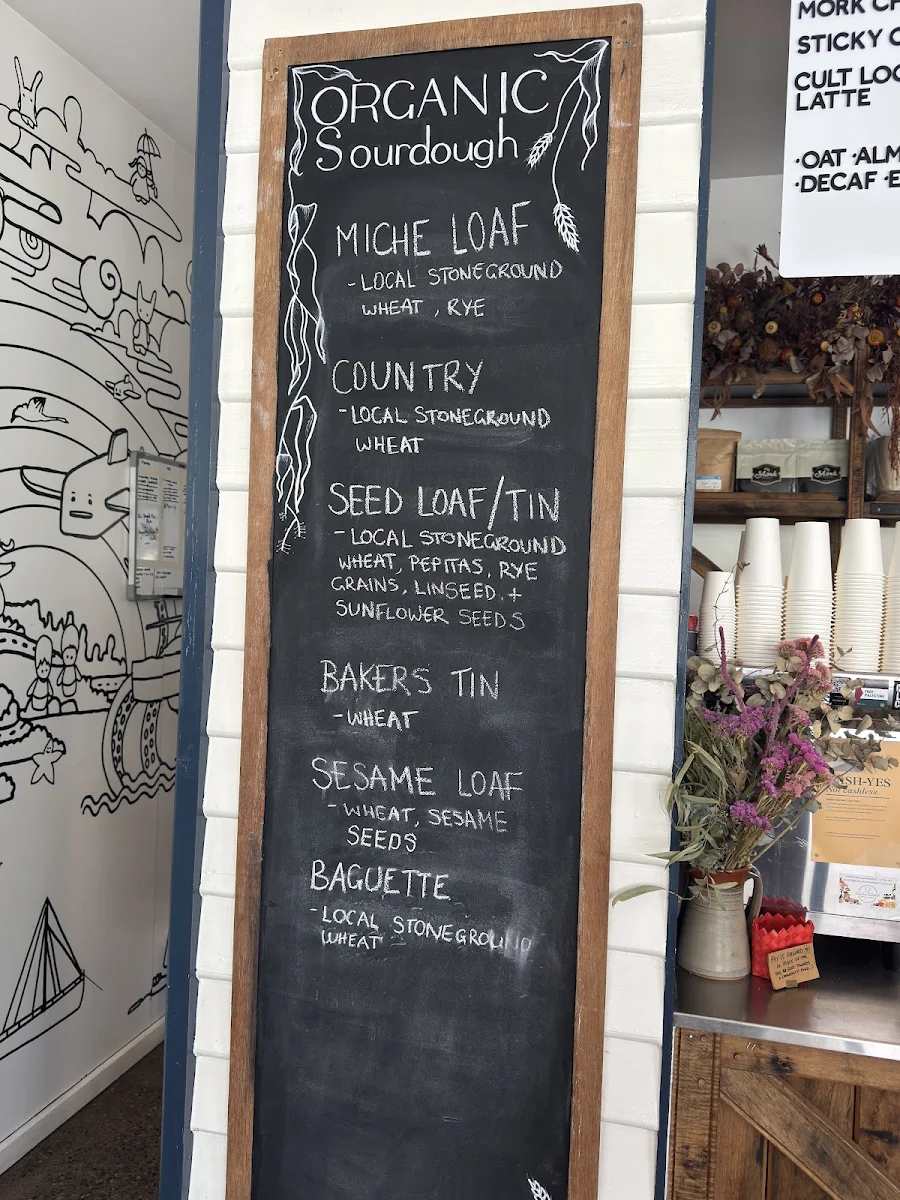 ORGANIC
Sourdough
MICHE LOAF
- LOCAL STONEGROUND
WHEAT , RYE
COUNTRY
- LOCAL STONEGROUND
WHEAT
SEED LOAF/TIN
- LOCAL STONEGROUND
WHEAT, PEPITAS, RYE
GRAINS, LINSEED, +
SUNFLOWER SEEDS
BAKERS TIN
- WHEAT
SESAME LOAF
- WHEAT, SESAME
SEEDS
BAGUETTE
- LOCAL STONEGROUND
WHEAT
MORK
STICKY
CULT
LATTE
·OAT
·DECAF
Not cashless